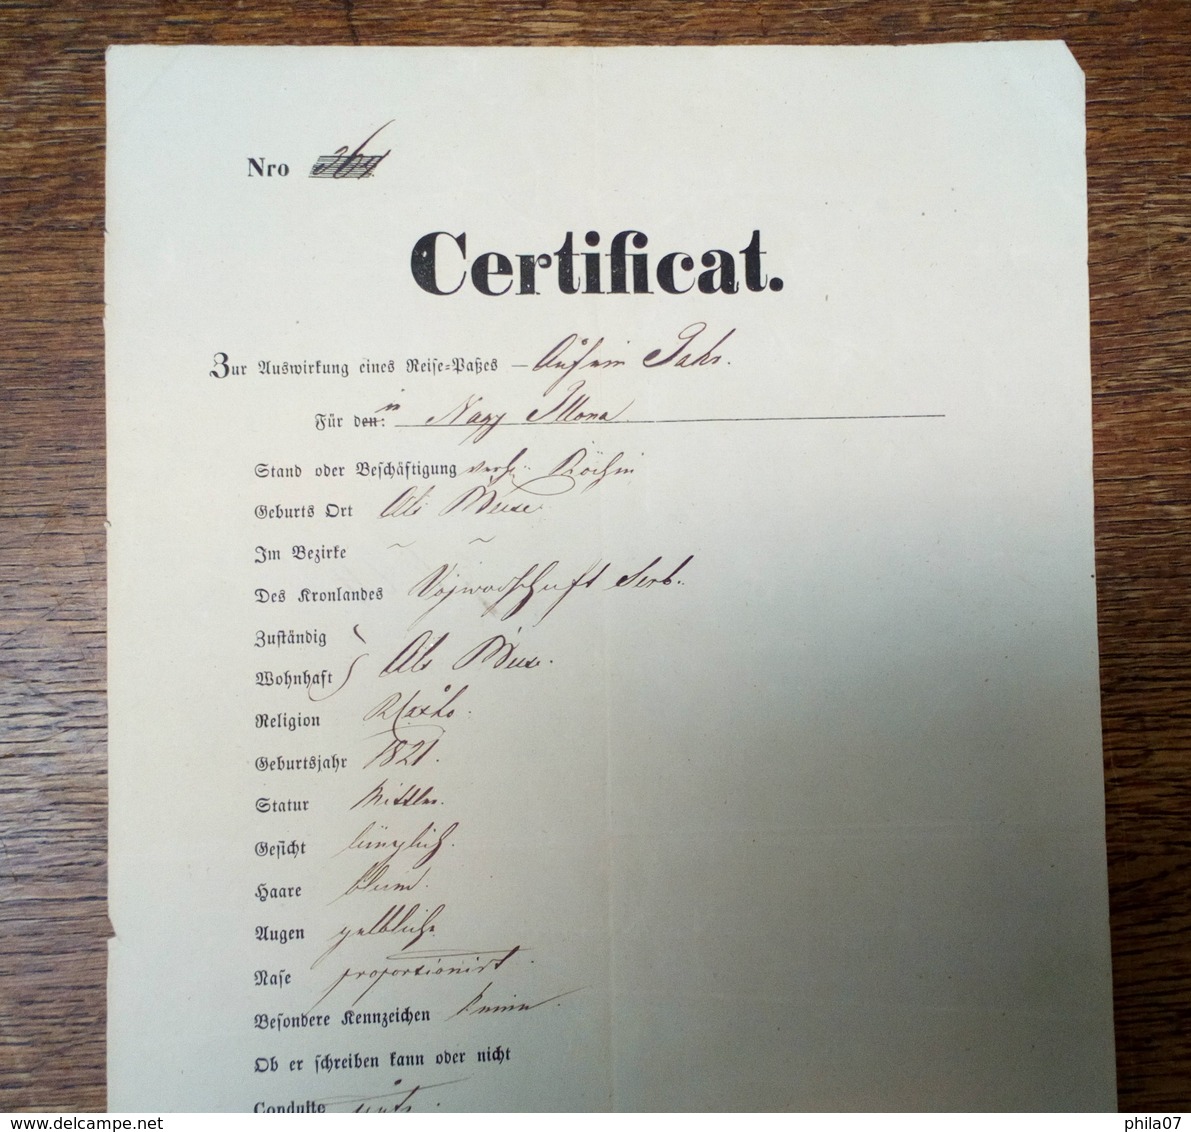 Nro 361
Certificat.
Zur Auswirkung eines Reise-Paßes — Auf ein Jahr.
Für den: Nagy Illona
Stand oder Beschäftigung Köchin
Geburts Ort Als
Im Bezirke ~ ~
Des Kronlandes Vojwodschaft Serb.
Zuständig
Wohnhaft Als
Religion
Geburtsjahr 1821.
Statur Mittler.
Gesicht länglich.
Haare blond.
Augen gelblich
Nase proportionirt.
Besondere Kennzeichen Keine.
Ob er schreiben kann oder nicht
Conduite gute.
www.delcampe.net
phila07